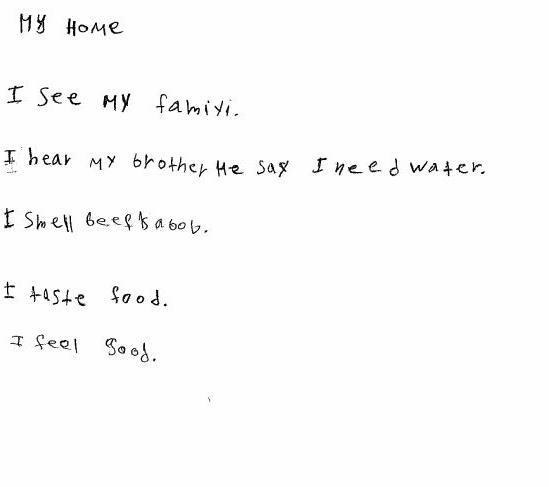 MY HOME
I see MY famiyi.
I hear MY brother He say I need water.
I smell beef kabob.
I taste food.
I feel good.